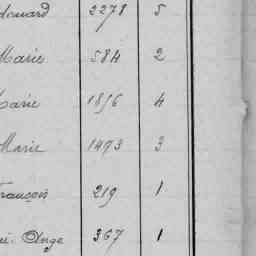 douard 2278 5
Marie 584 2
Marie 1856 4
Marie 1493 3
François 219 1
Ange 367 1